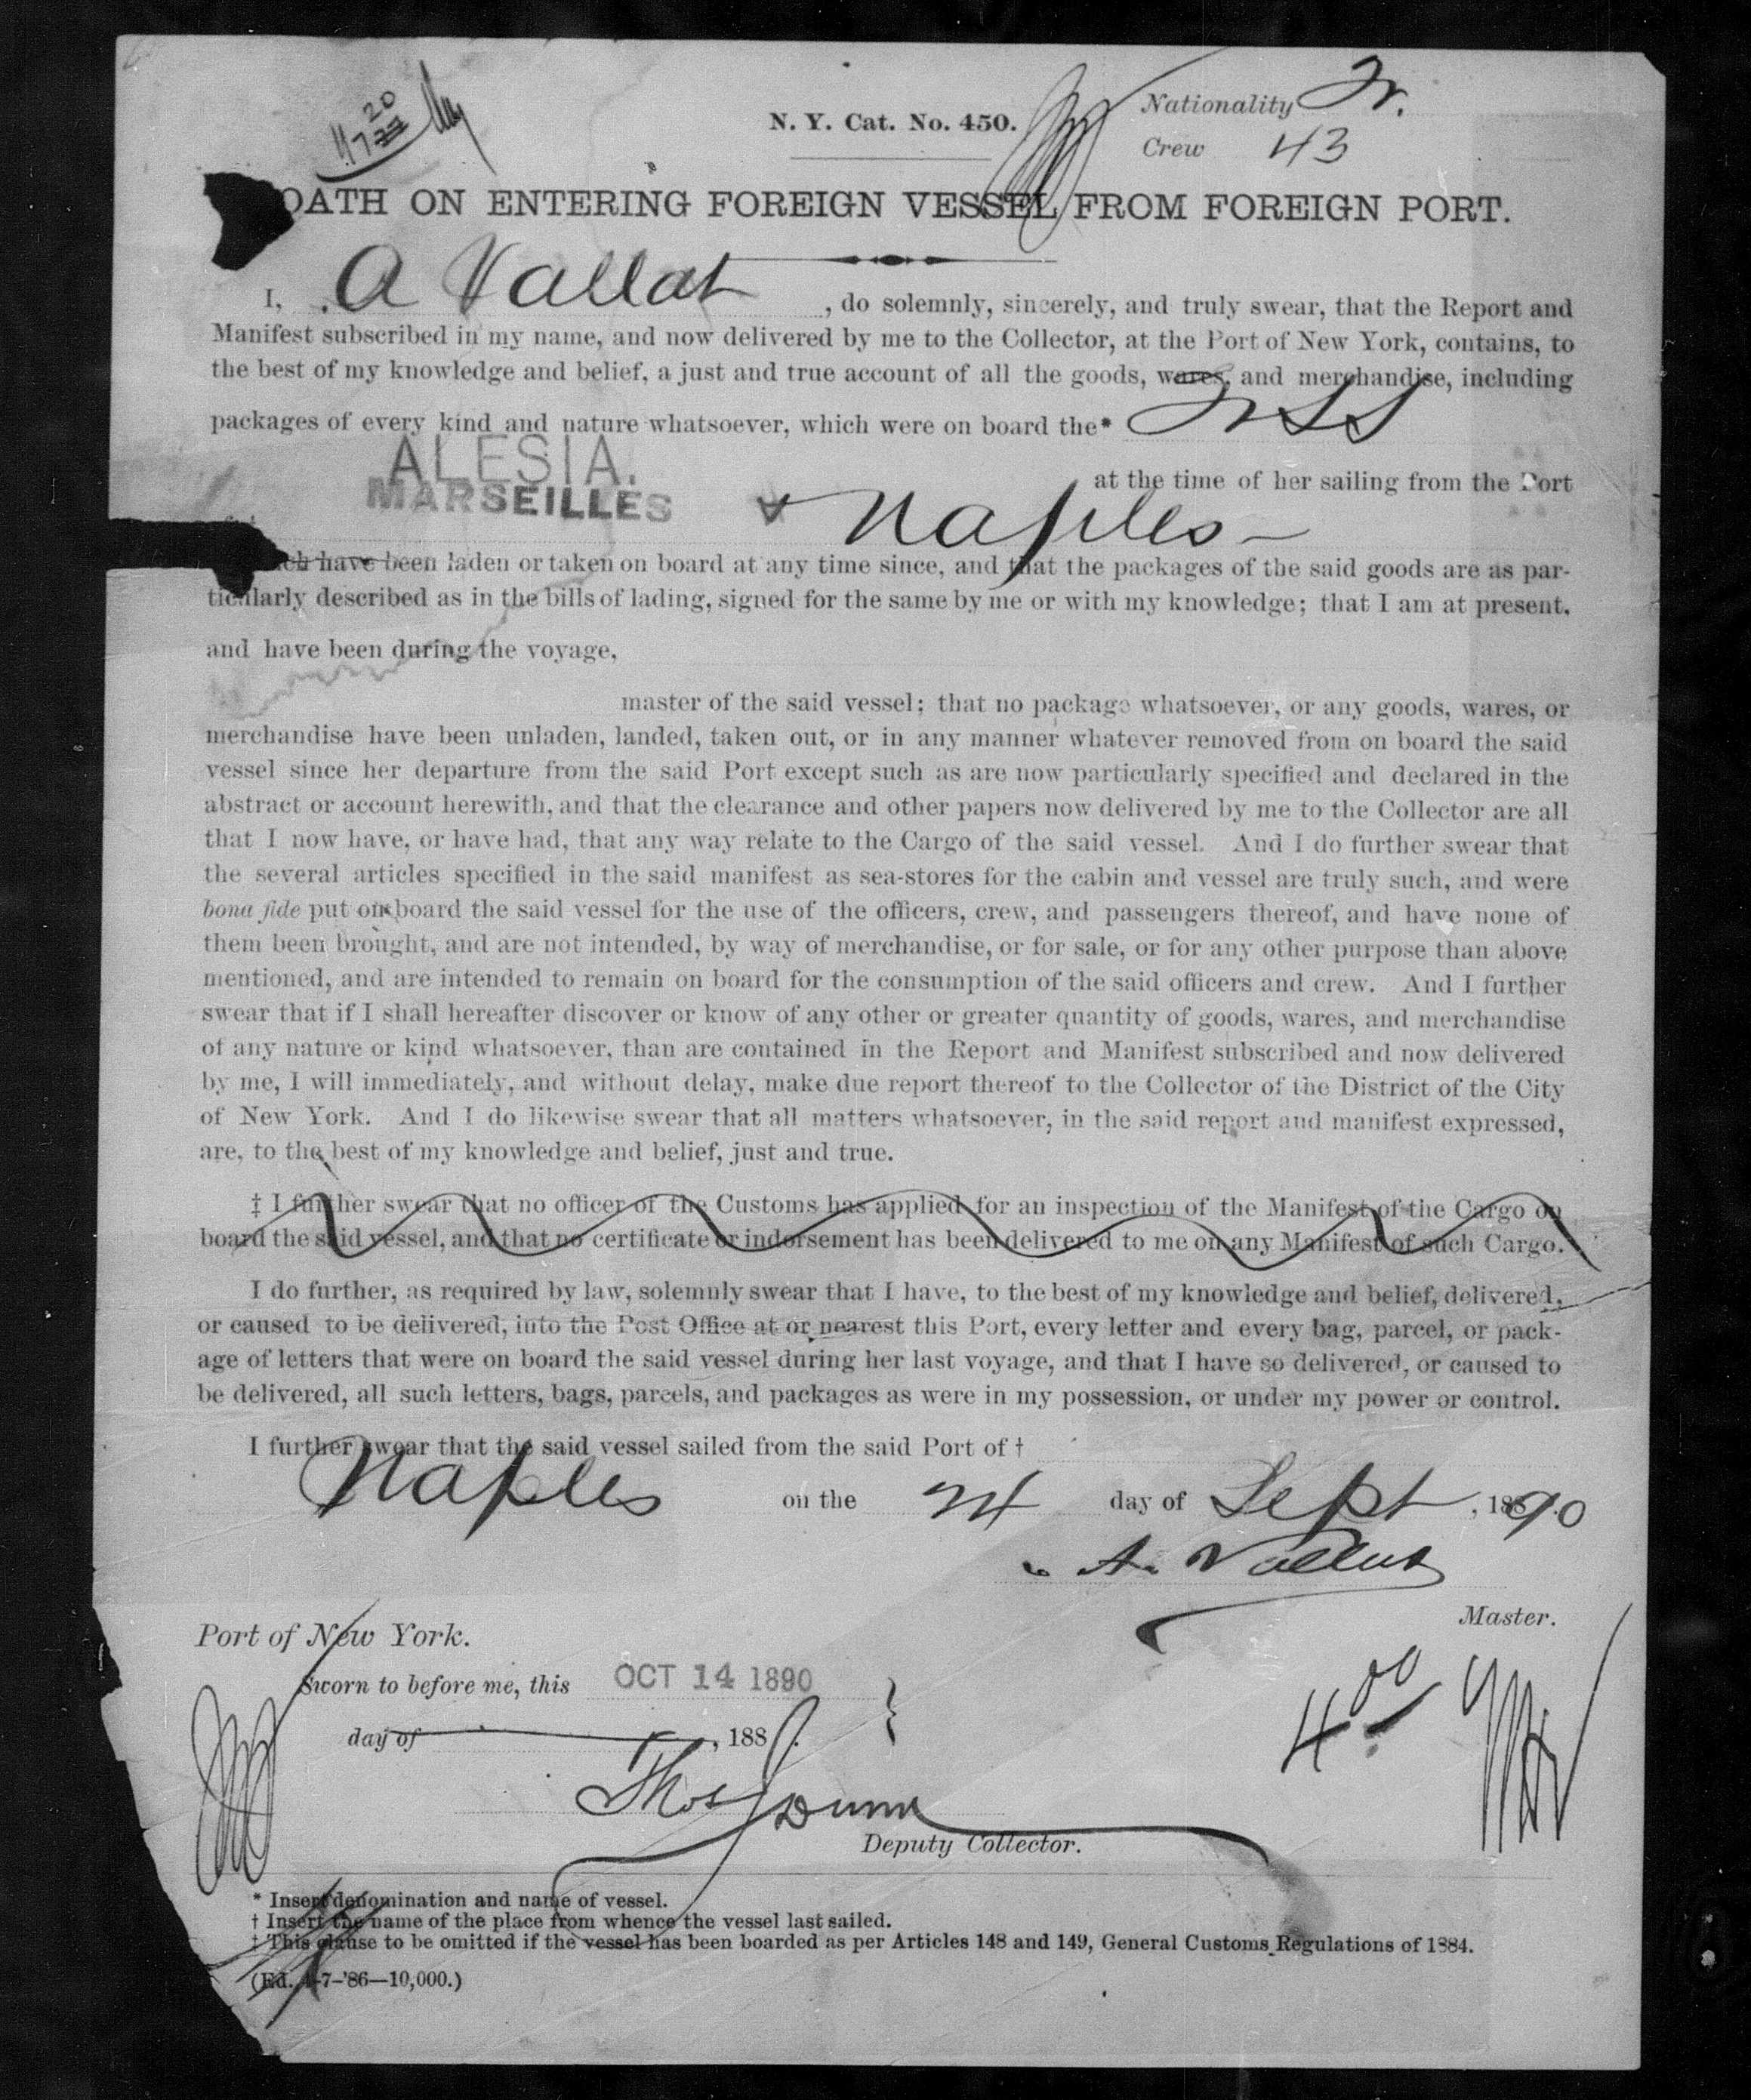 20
N. Y. Cat. No. 450.
Nationality Fr.
Crew 43
OATH ON ENTERING FOREIGN VESSEL FROM FOREIGN PORT.
I, A Vallat, do solemnly, sincerely, and truly swear, that the Report and
Manifest subscribed in my name, and now delivered by me to the Collector, at the Port of New York, contains, to
the best of my knowledge and belief, a just and true account of all the goods, wares, and merchandise, including
packages of every kind and nature whatsoever, which were on board the* Fr SS
ALESIA.
at the time of her sailing from the Port
MARSEILLES & Naples
have been laden or taken on board at any time since, and that the packages of the said goods are as par-
ticularly described as in the bills of lading, signed for the same by me or with my knowledge; that I am at present,
and have been during the voyage,
master of the said vessel; that no package whatsoever, or any goods, wares, or
merchandise have been unladen, landed, taken out, or in any manner whatever removed from on board the said
vessel since her departure from the said Port except such as are now particularly specified and declared in the
abstract or account herewith, and that the clearance and other papers now delivered by me to the Collector are all
that I now have, or have had, that any way relate to the Cargo of the said vessel. And I do further swear that
the several articles specified in the said manifest as sea-stores for the cabin and vessel are truly such, and were
bona fide put on board the said vessel for the use of the officers, crew, and passengers thereof, and have none of
them been brought, and are not intended, by way of merchandise, or for sale, or for any other purpose than above
mentioned, and are intended to remain on board for the consumption of the said officers and crew. And I further
swear that if I shall hereafter discover or know of any other or greater quantity of goods, wares, and merchandise
of any nature or kind whatsoever, than are contained in the Report and Manifest subscribed and now delivered
by me, I will immediately, and without delay, make due report thereof to the Collector of the District of the City
of New York. And I do likewise swear that all matters whatsoever, in the said report and manifest expressed,
are, to the best of my knowledge and belief, just and true.
‡ I further swear that no officer of the Customs has applied for an inspection of the Manifest of the Cargo on
board the said vessel, and that no certificate or indorsement has been delivered to me on any Manifest of such Cargo.
I do further, as required by law, solemnly swear that I have, to the best of my knowledge and belief, delivered,
or caused to be delivered, into the Post Office at or nearest this Port, every letter and every bag, parcel, or pack-
age of letters that were on board the said vessel during her last voyage, and that I have so delivered, or caused to
be delivered, all such letters, bags, parcels, and packages as were in my possession, or under my power or control.
I further swear that the said vessel sailed from the said Port of †
Naples on the 24 day of Sept, 1890
A. Vallat
Master.
Port of New York.
Sworn to before me, this OCT 14 1890
day of , 188 .
4 00
Thos J Dunn
Deputy Collector.
* Insert denomination and name of vessel.
† Insert the name of the place from whence the vessel last sailed.
‡ This clause to be omitted if the vessel has been boarded as per Articles 148 and 149, General Customs Regulations of 1884.
(Ed. 4-7-'86—10,000.)